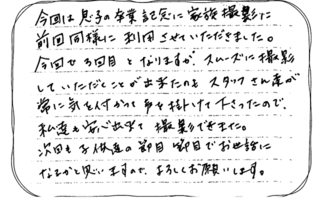 今回は息子の卒業記念に家族撮影に
前回同様に利用させていただきました。
今回で3回目となりますが、スムーズに撮影
していただくことが出来たのもスタッフさん達が
常に気を付かって声を掛けて下さったので、
私達も安心出来て撮影できました。
次回も子供達の節目節目でお世話に
なるかと思いますので、よろしくお願いします。